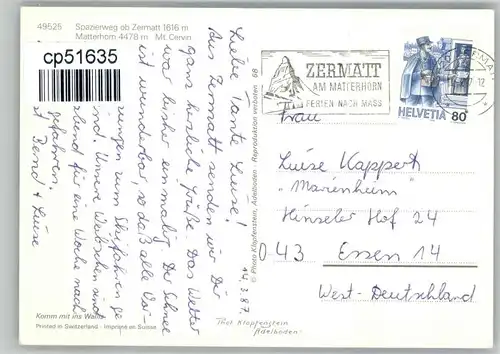 49525 Spazierweg ob Zermatt 1616 m
Matterhorn 4478 m Mt. Cervin
cp51635
14.3.87.
Liebe Tante Luise!
Aus Zermatt senden wir Dir
ganz herzliche Grüße. Das Wetter
war bisher einmalig. Der Schnee
ist wunderbar, so daß alle Vor-
zum Skifahren ge
sind. Unsere
für eine Woche nach
gefahren.
Bernd + Luise
Komm mit ins Wallis
Printed in Switzerland - Imprimé en Suisse
© Photo Klopfenstein, Adelboden Reproduktion verboten 68
ZERMATT
AM MATTERHORN
FERIEN NACH MASS
HELVETIA 80
Frau
Luise Kappert
"Marienheim"
Hinseler Hof 24
D 43 Essen 14
West-Deutschland
Phot Klopfenstein
Adelboden